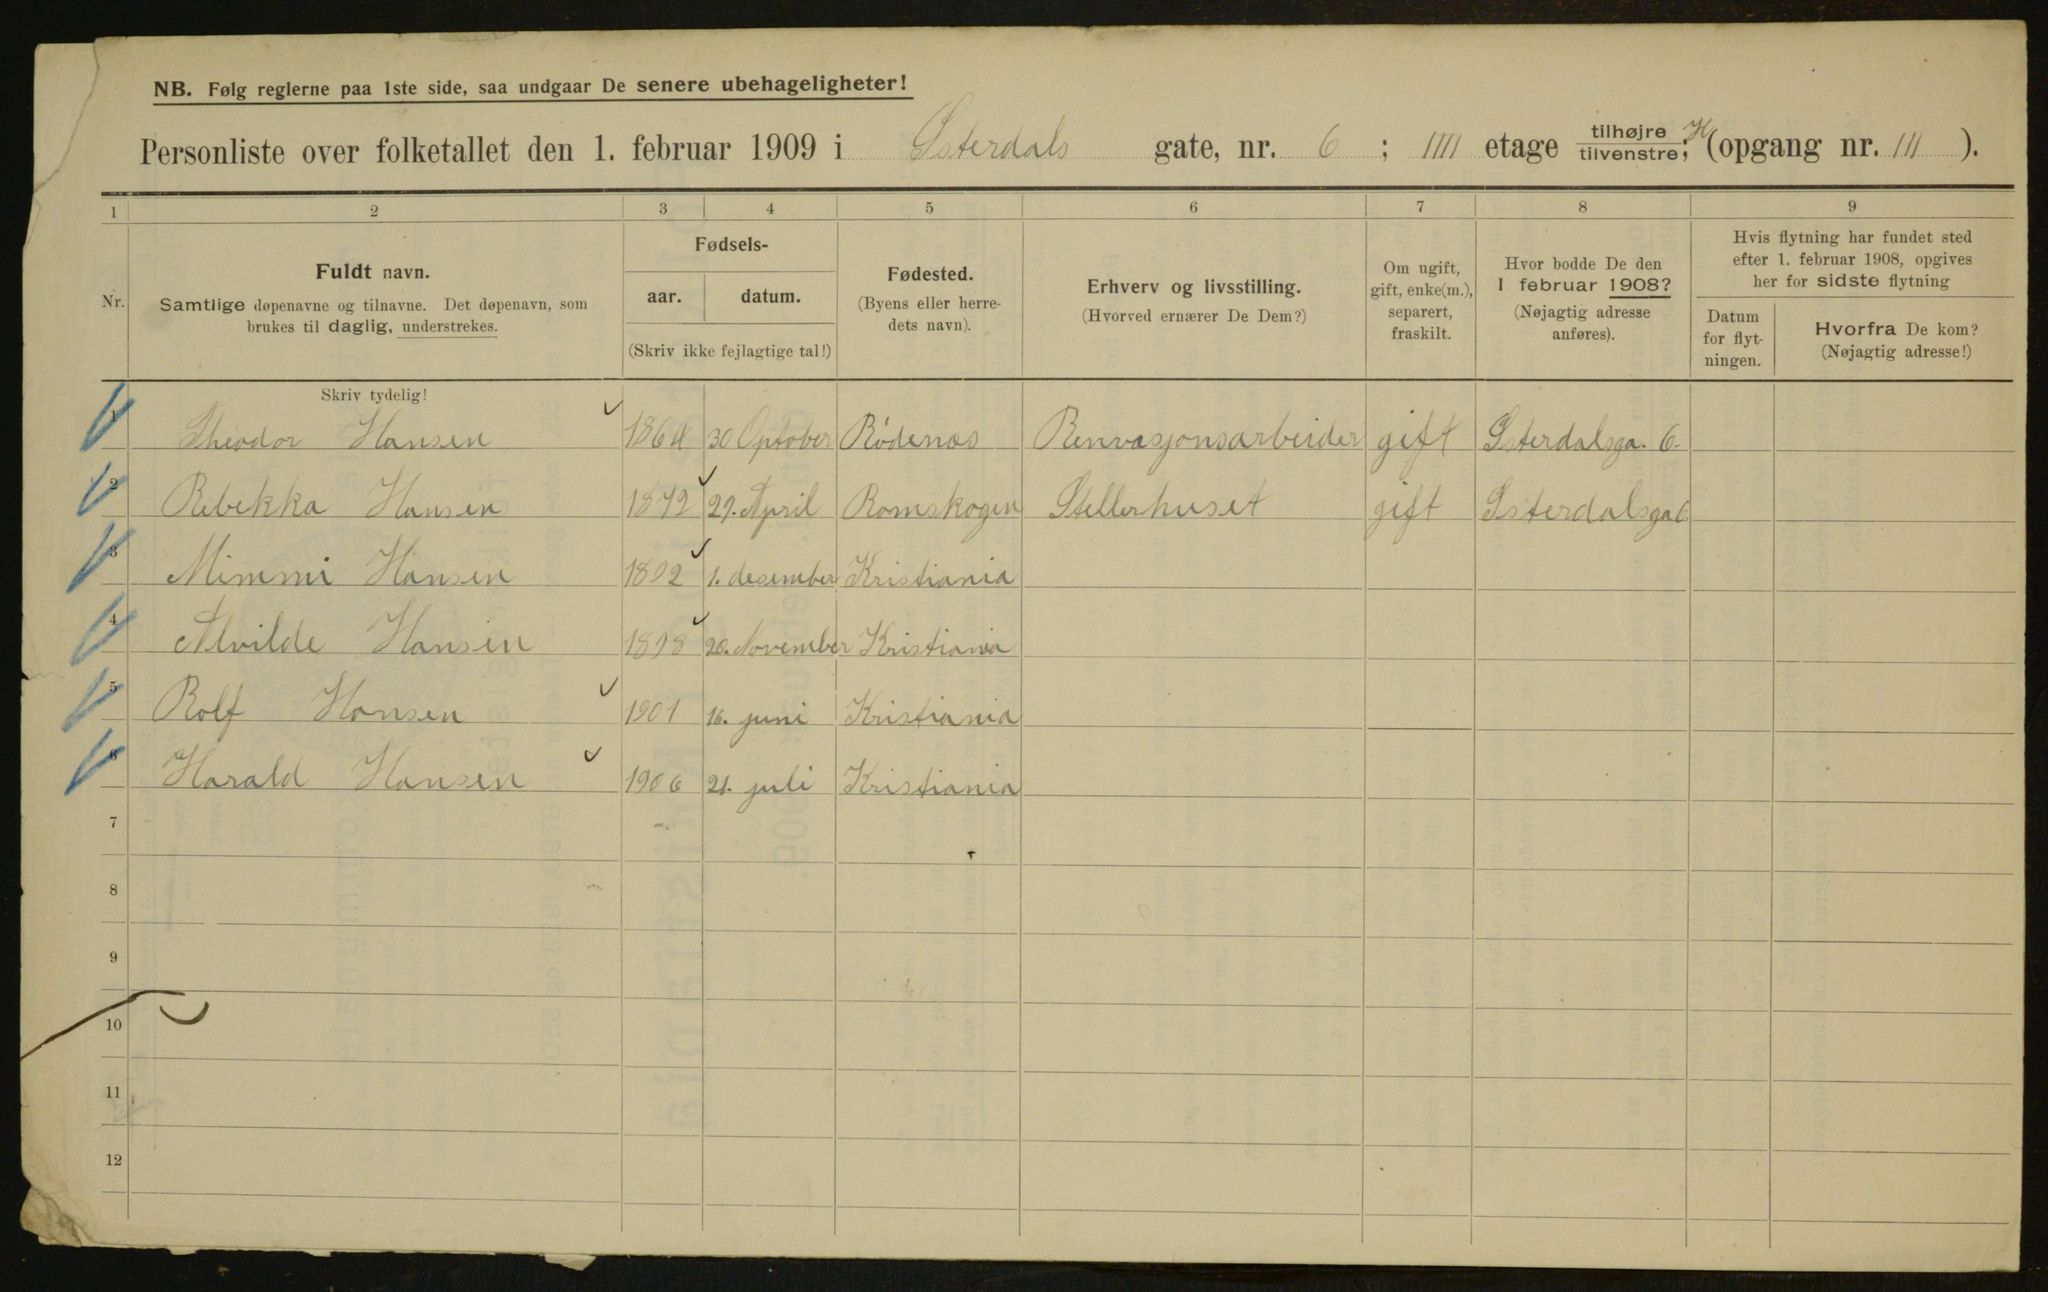 NB. Følg reglerne paa 1ste side, saa undgaar De senere ubehageligheter!
Personliste over folketallet den 1. februar 1909 i Østerdals gate, nr. 6 ; IIII etage tilhøjre/tilvenstre; H (opgang nr. III ).
1 2 3 4 5 6 7 8 9
Nr.
Fuldt navn.
Samtlige døpenavne og tilnavne. Det døpenavn, som
brukes til daglig, understrekes.
Fødsels-
aar. datum.
(Skriv ikke fejlagtige tal!)
Fødested.
(Byens eller herre-
dets navn).
Erhverv og livsstilling.
(Hvorved ernærer De Dem?)
Om ugift,
gift, enke(m.),
separert,
fraskilt.
Hvor bodde De den
1. februar 1908?
(Nøjagtig adresse
anføres).
Hvis flytning har fundet sted
efter 1. februar 1908, opgives
her for sidste flytning
Datum
for flyt-
ningen.
Hvorfra De kom?
(Nøjagtig adresse!)
Skriv tydelig!
1 Theodor Hansen 1864 30 Optober Rödenæs Renvasjonsarbeider gift Østerdalsga. 6.
2 Rebekka Hansen 1872 29. April Romskogen Stellerhuset gift Østerdalsga 6
3 Mimmi Hansen 1892 1. desember Kristiania
4 Alvilde Hansen 1898 20. November Kristiania
5 Rolf Hansen 1901 16. juni Kristiania
6 Harald Hansen 1906 21. juli Kristiania
7
8
9
10
11
12